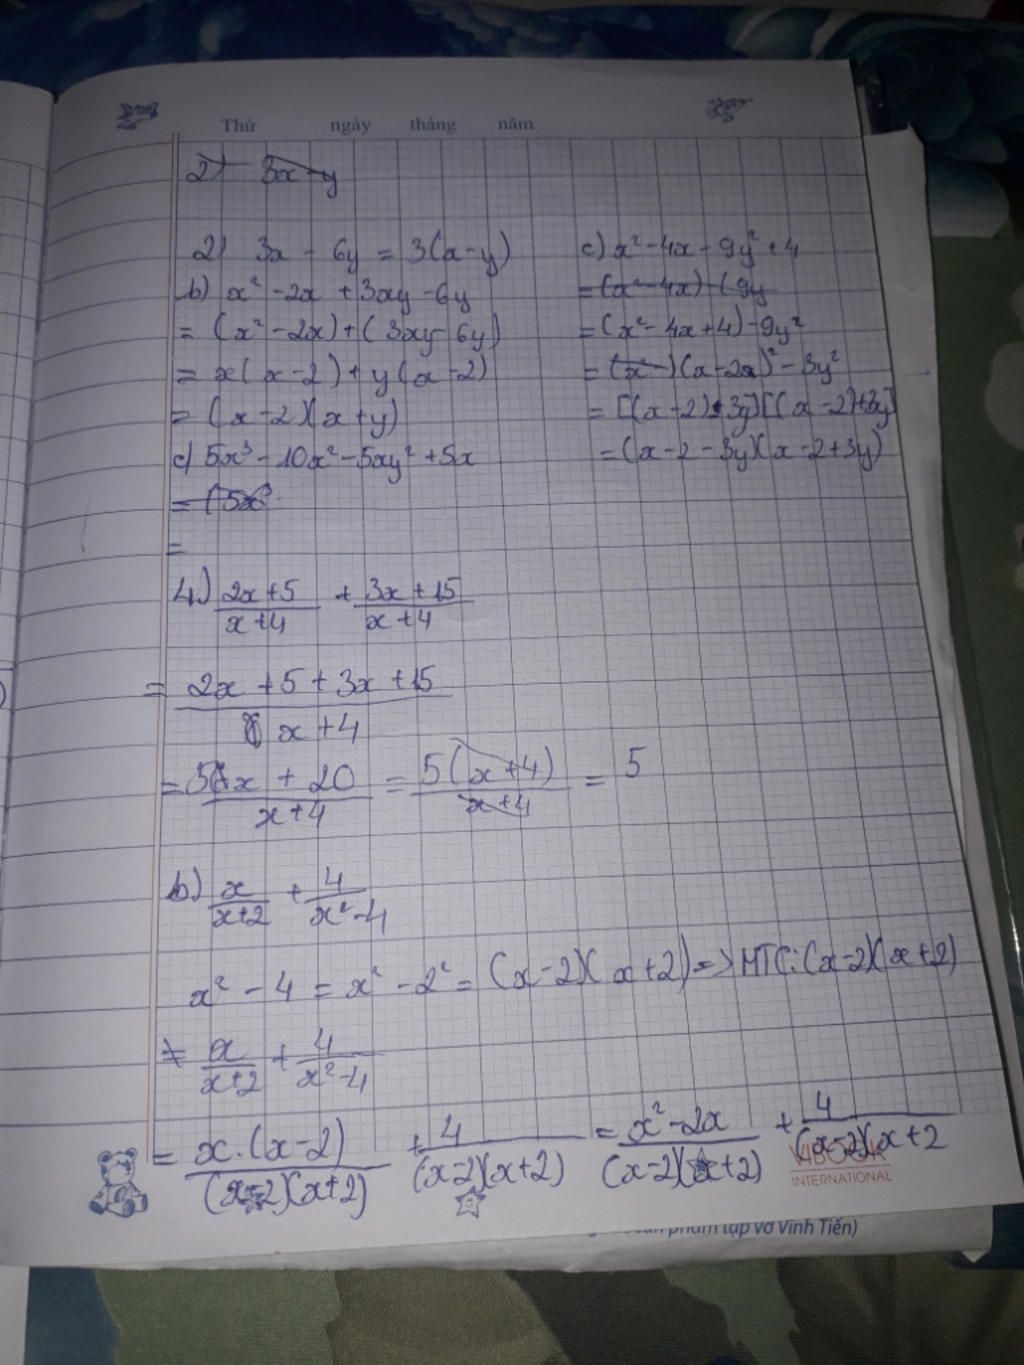 Thứ ngày tháng năm
2) 3x - y
2) 3x - 6y = 3(x-y)
b) x² -2x + 3xy -6y
= (x² -2x)+(3xy-6y)
= x(x-2)+y(x-2)
= (x-2)(x+y)
c) 5x³ - 10x² -5xy² +5x
= (5x³
=
c) x² -4x - 9y² +4
=(x²-4x)-(9y
=(x²-4x+4)-9y²
=(x-)(x-2x)² - 3y²
= [(x-2)-3y][(x-2)+3y]
=(x-2-3y)(x-2+3y)
4.) 2x+5/x+4 + 3x+15/x+4
= 2x+5+3x+15/x+4
= 5x + 20/x+4 = 5(x+4)/x+4 = 5
b.) x/x+2 + 4/x²-4
x² - 4 = x² - 2² = (x-2)(x+2) => MTC: (x-2)(x+2)
= x/x+2 + 4/x²-4
= x.(x-2)/(x-2)(x+2) + 4/(x-2)(x+2) = x²-2x/(x-2)(x+2) + 4/(x-2)(x+2
INTERNATIONAL
phẩm tập vở Vĩnh Tiến)